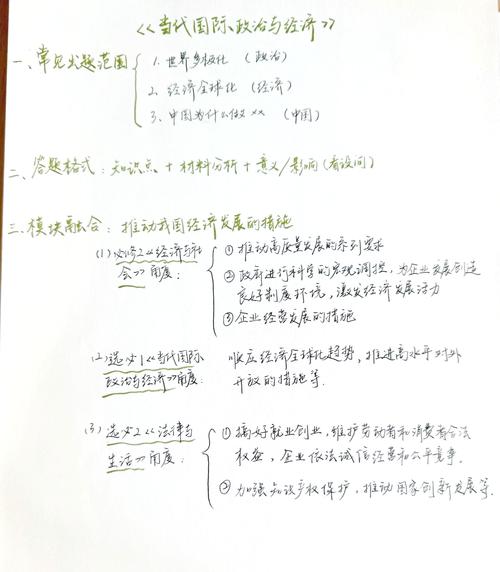 《当代国际政治与经济》
一、常见出题范围
1. 世界多极化 (政治)
2. 经济全球化 (经济)
3. 中国为什么做×× (中国)
二、答题格式：知识点 + 材料分析 + 意义/影响 (看设问)
三、模块融合：推动我国经济发展的措施
(1) 必修2《经济与社
会》角度：
① 推动高质量发展的系列要求
② 政府进行科学的宏观调控，为企业发展创造
良好制度环境，激发经济发展活力
③ 企业经营发展的措施
(2) 选必1《当代国际
政治与经济》角度：
顺应经济全球化趋势，推进高水平对外
开放的措施等.
(3) 选必2《法律与
生活》角度：
① 搞好就业创业，维护劳动者和消费者合法
权益，企业依法诚信经营和公平竞争.
② 加强知识产权保护，推动国家创新发展等.